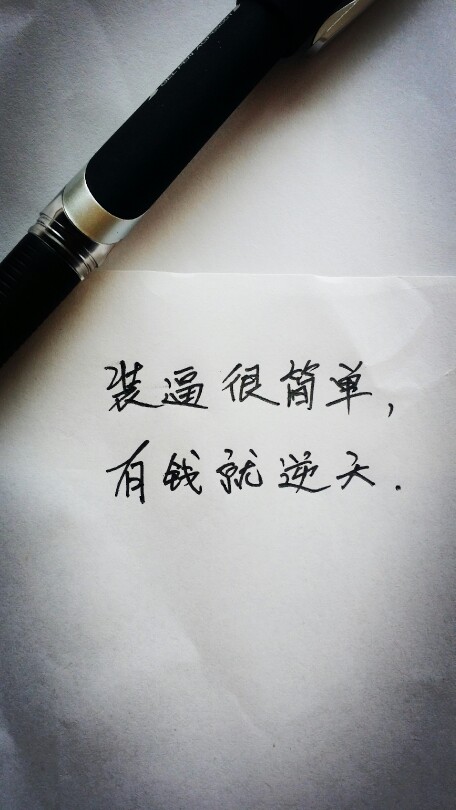 装逼很简单，
有钱就逆天.